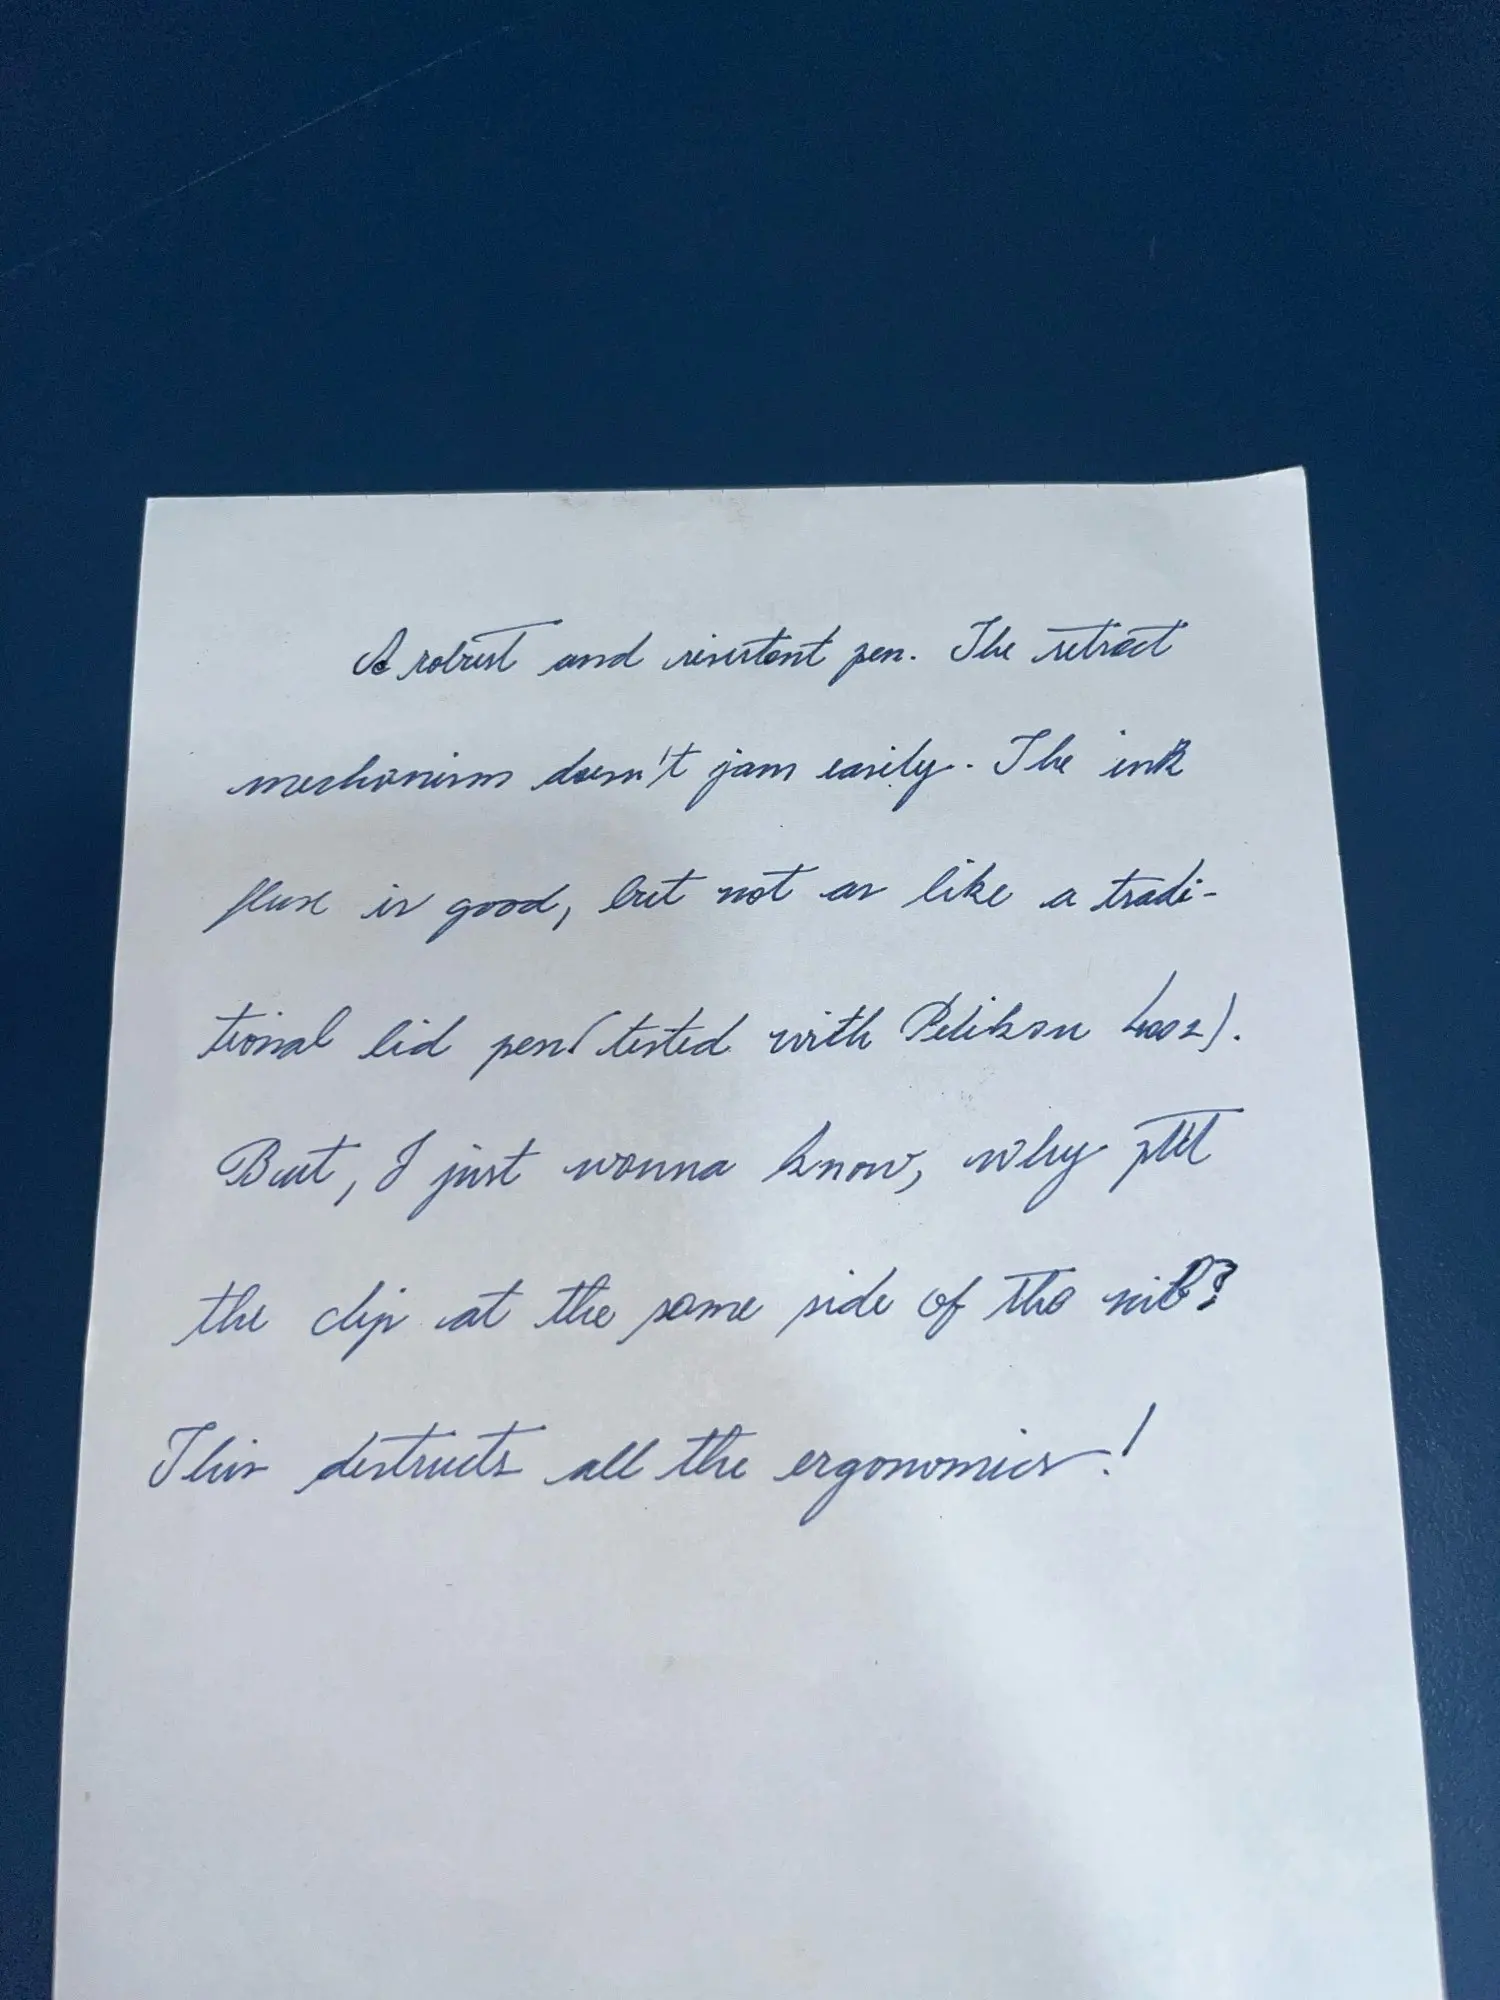 A robust and resistent pen. The retract
mechanism doesn't jam easily. The ink
flux is good, but not as like a tradi-
tional lid pen (tested with Pelikan
But, I just wanna know, why put
the clip at the same side of the nib?
This destructs all the ergonomics!